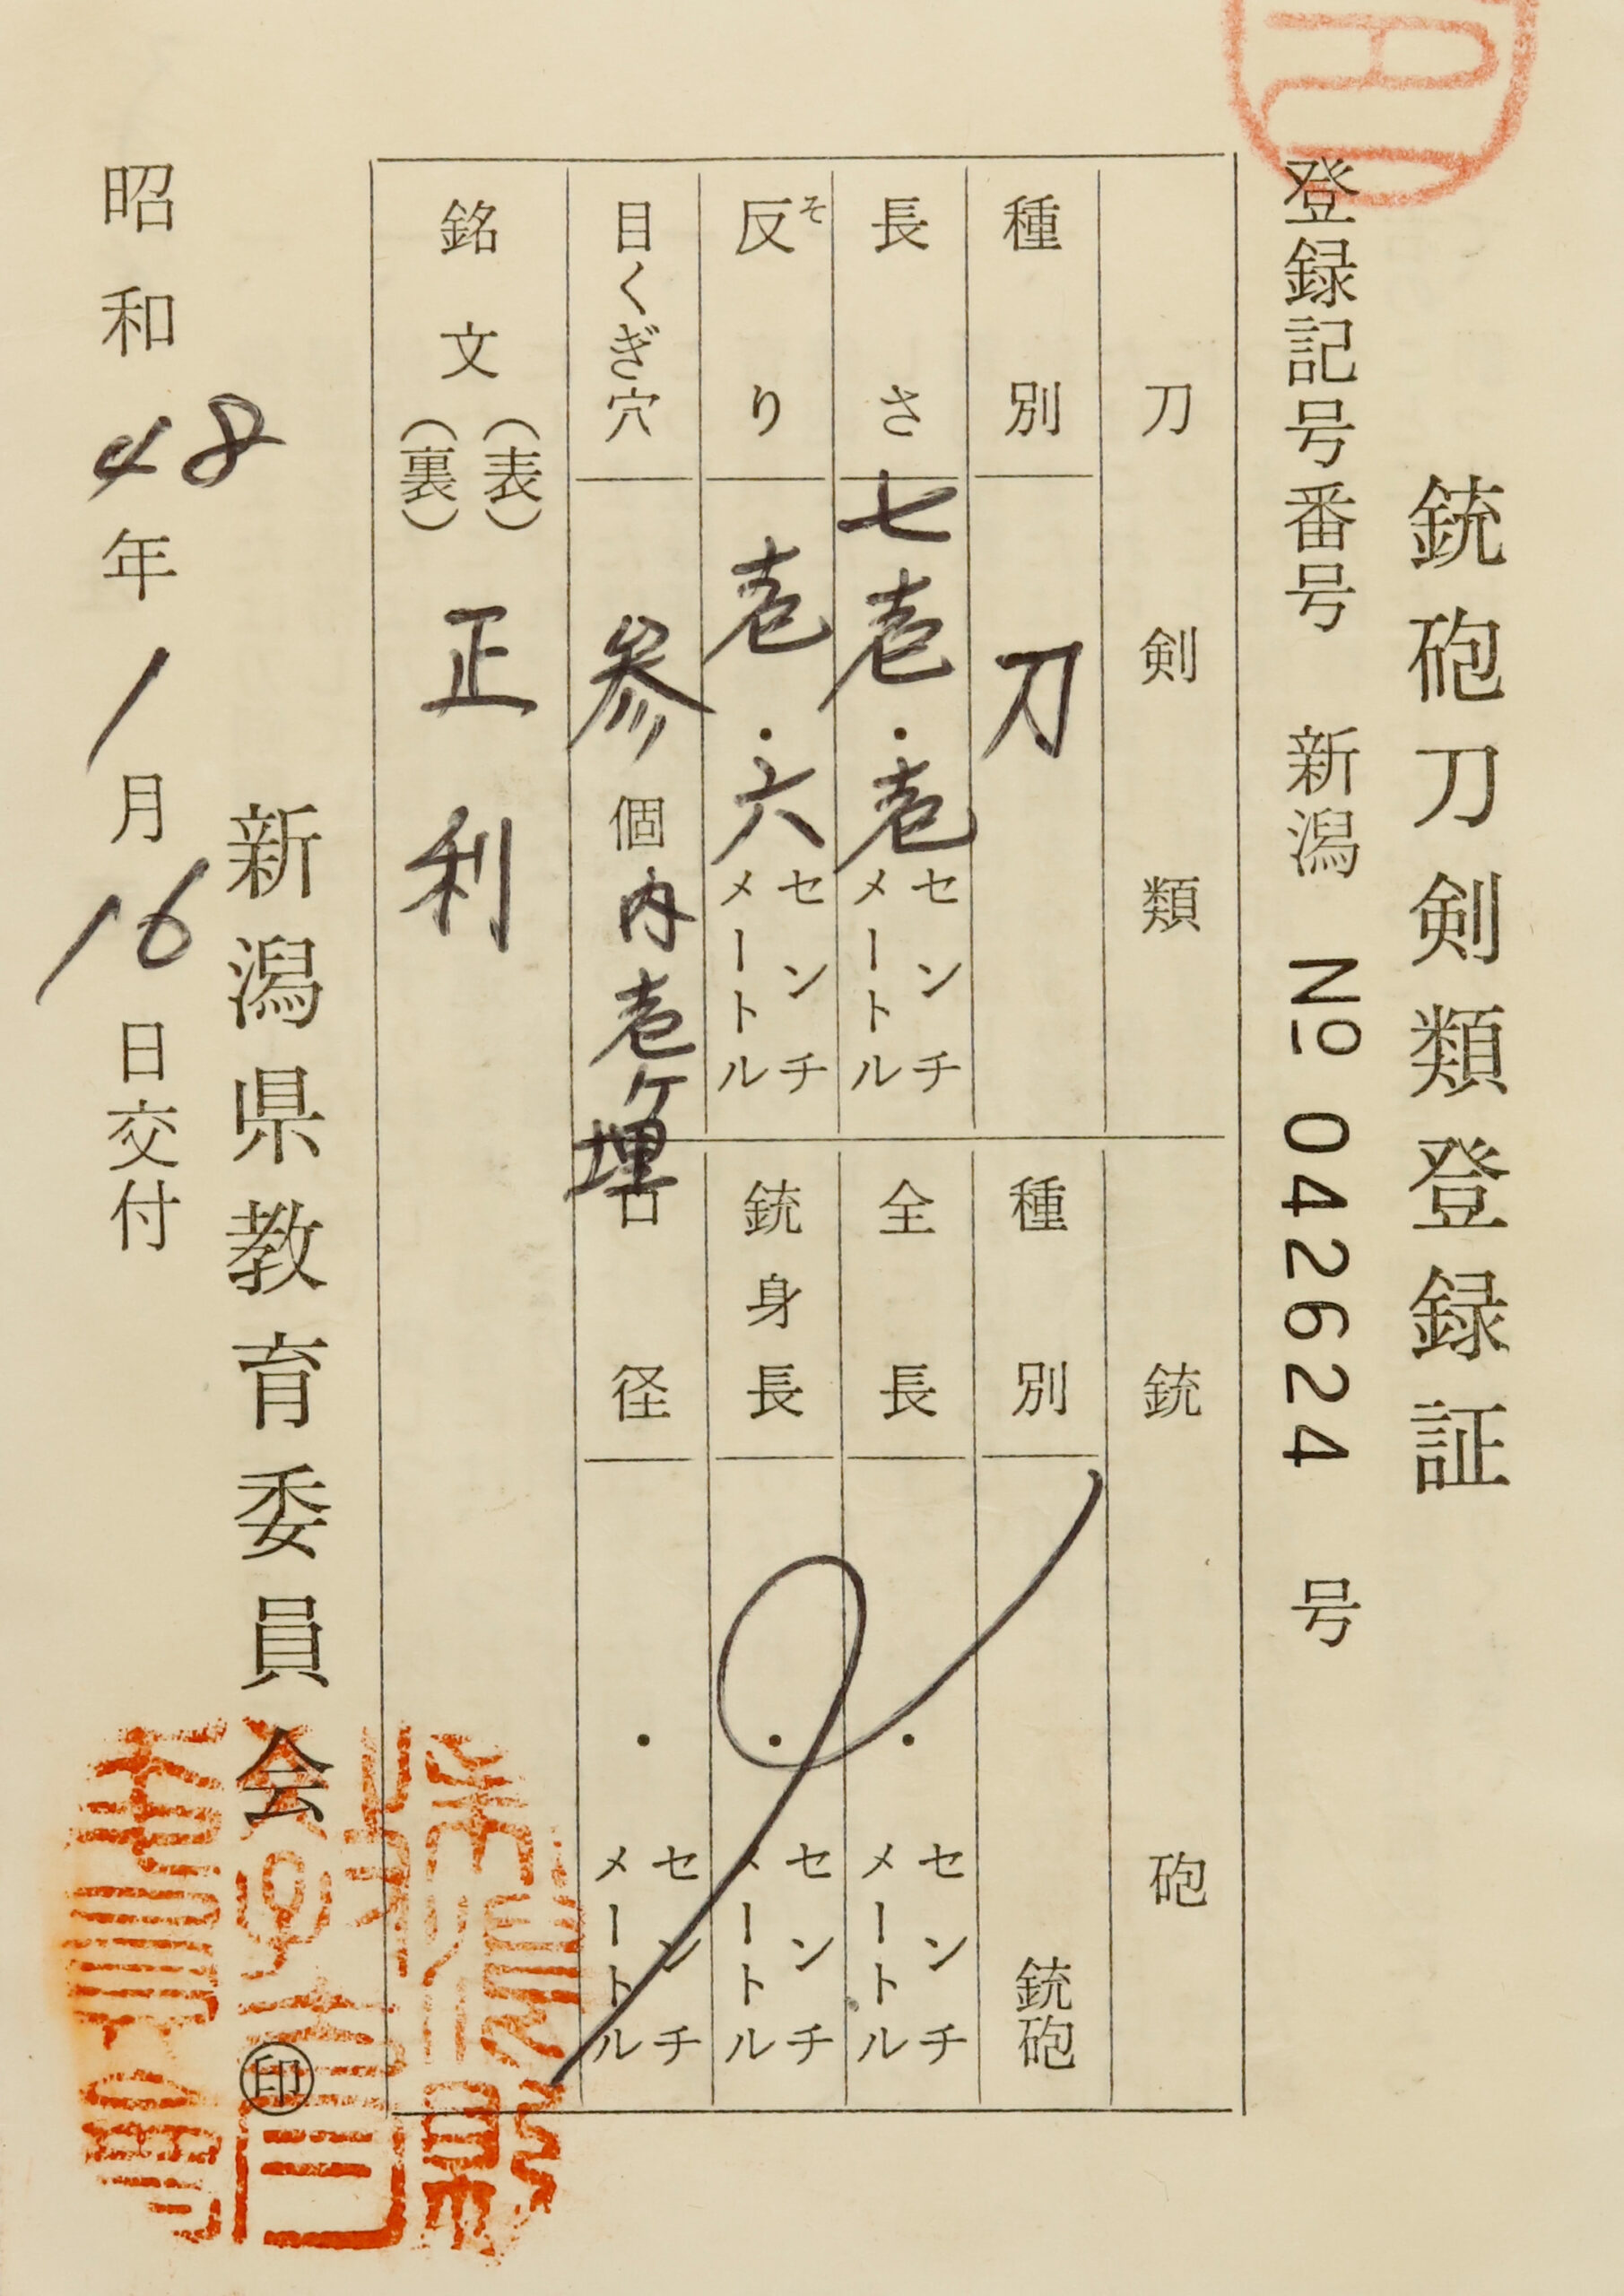 銃砲刀剣類登録証
登録記号番号 新潟 № 042624 号
刀剣類
種別 刀
長さ 七壱・壱 センチメートル
反り 壱・六 センチメートル
そ
目くぎ穴 参個内壱ケ埋
銘文 (表) 正利
(裏)
銃砲
種別 銃砲
全長 ・ センチメートル
銃身長 ・ センチメートル
口径 ・ センチメートル
新潟県教育委員会 ㊞
昭和48年1月16日交付